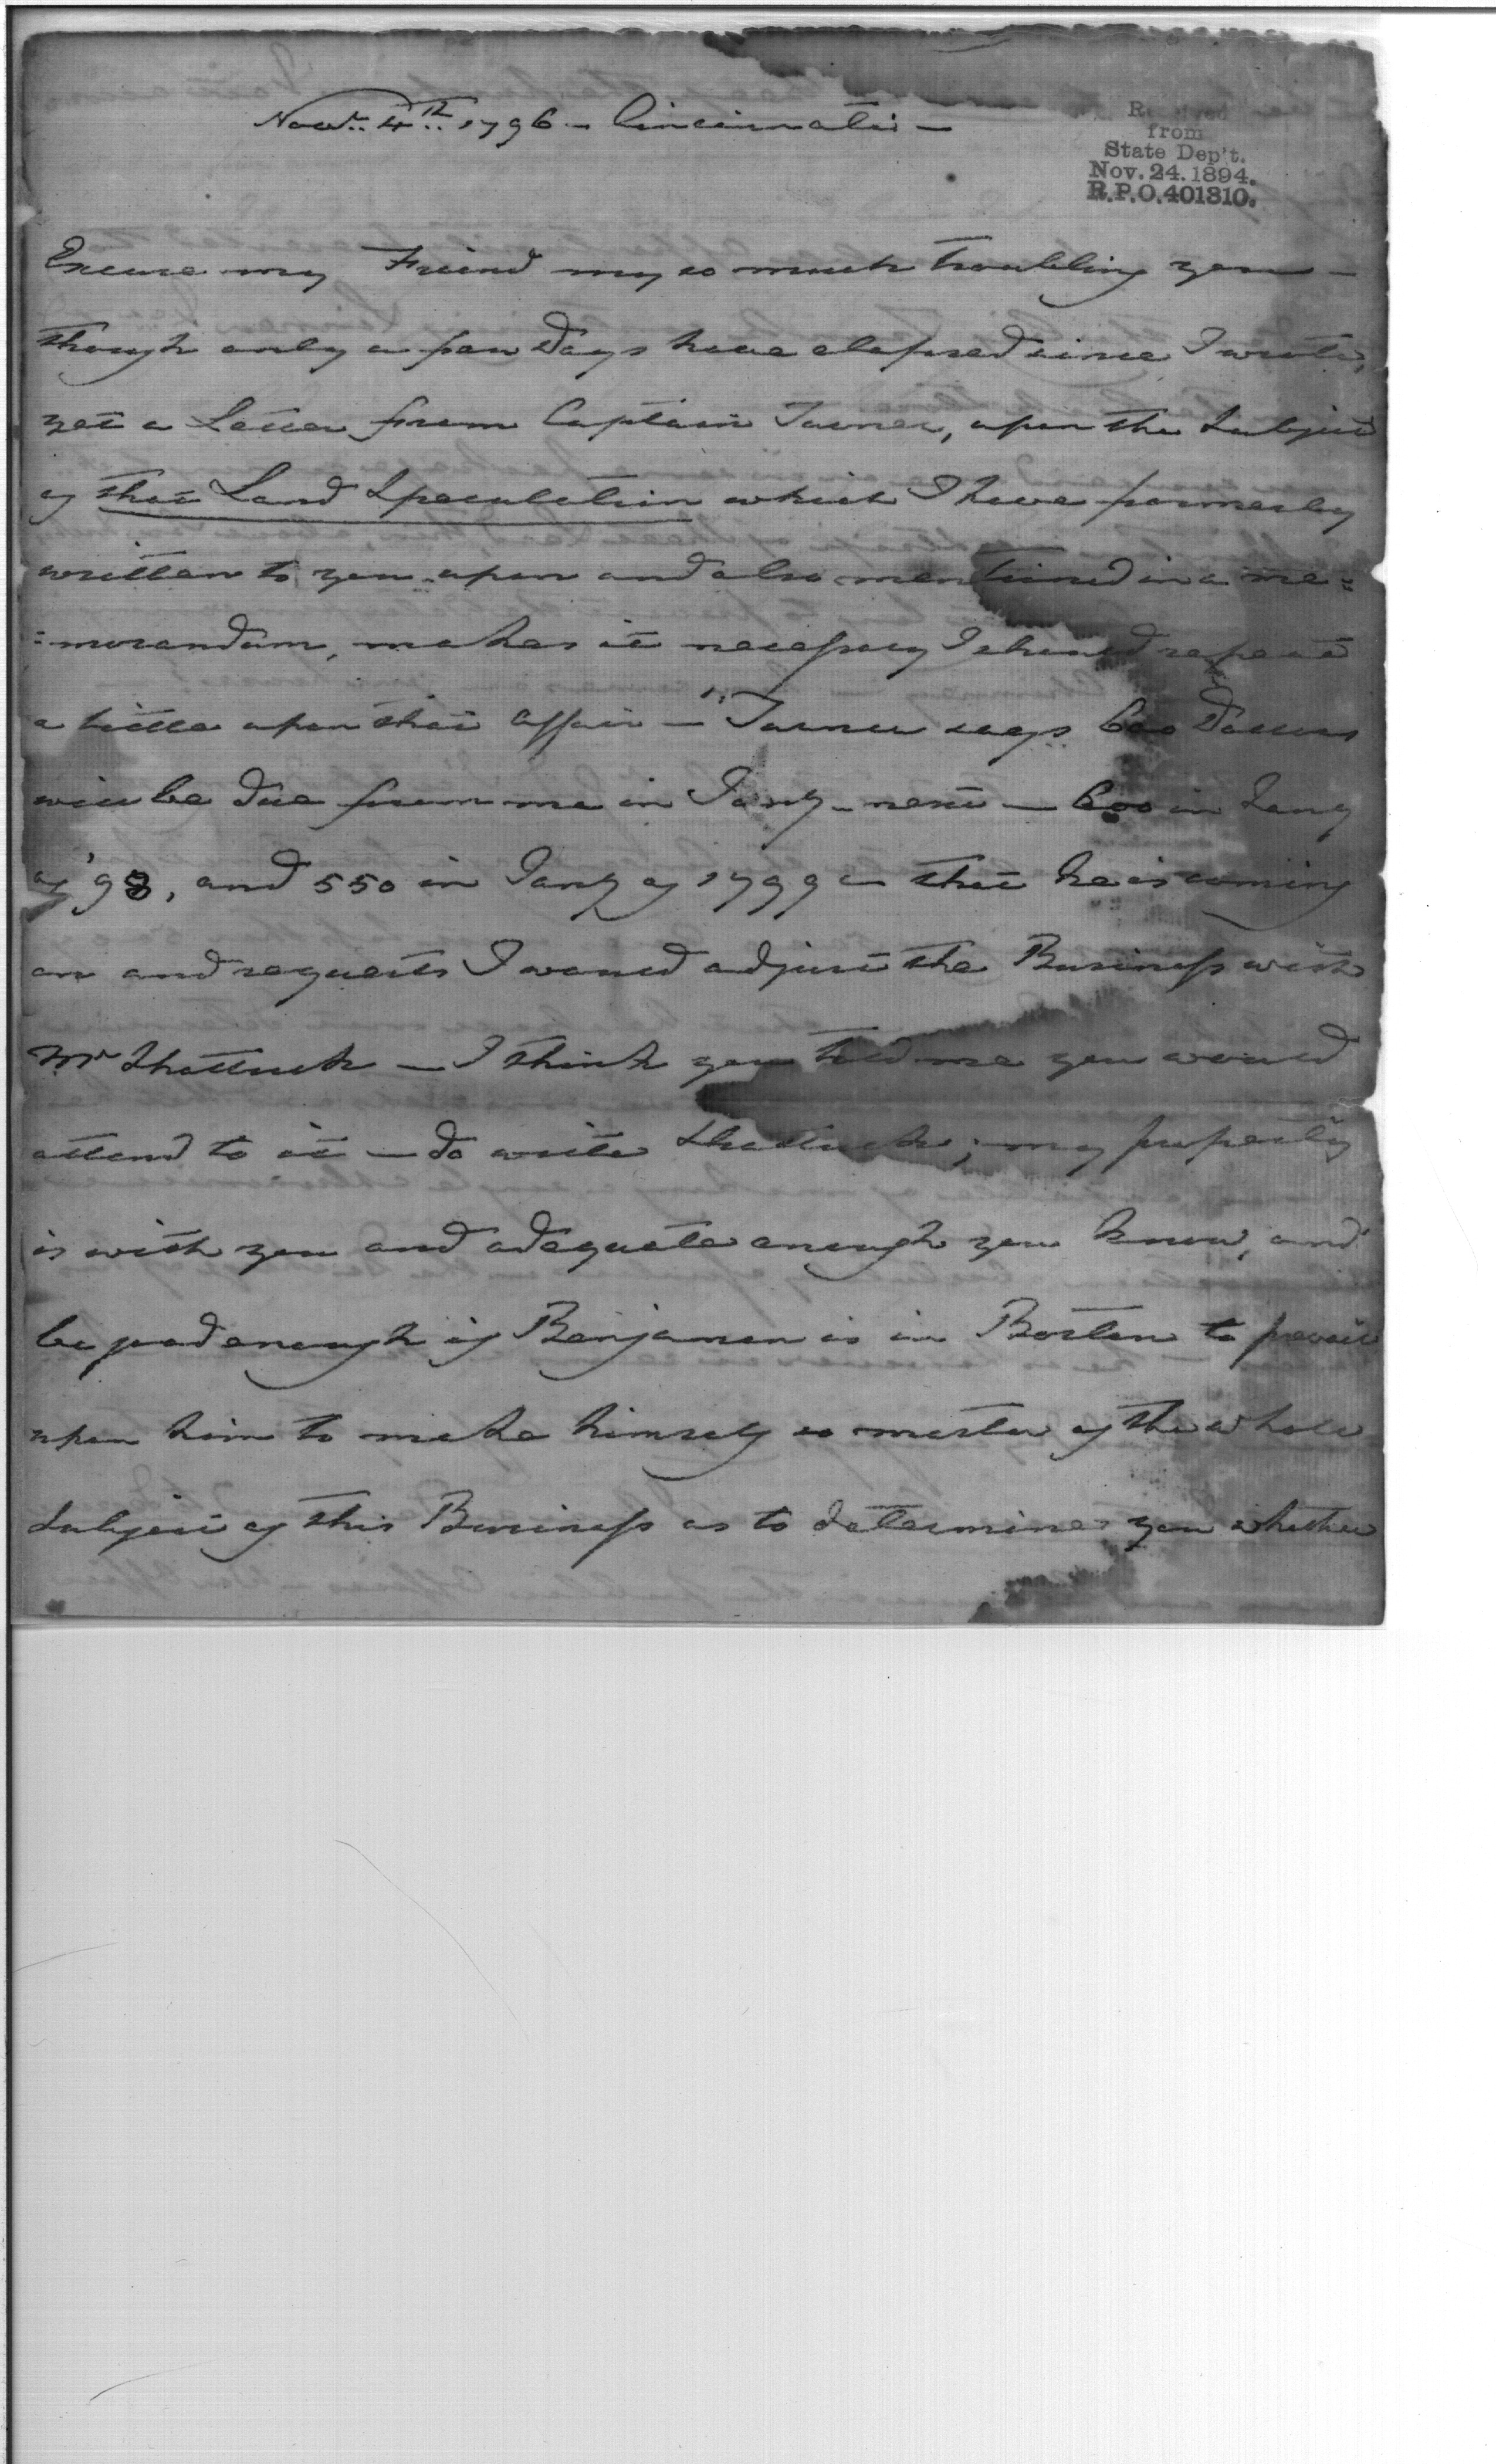 Novr. 4th. 1796 - Cincinnati -
Received
from
State Dep't.
Nov. 24. 1894.
R.P.O. 401310.
Excuse my Friend my so much troubling you -
though only a few Days have elapsed since I wrote,
yet a Letter from Captain Turner, upon the Subject
of that Land Speculation which I have formerly
written to you upon and also mentioned in a me=
=morandum, makes it necessary I should repeat
a little upon that affair - Turner says 600 Dollars
will be due from me in Jany - next - 600 in Jany
of '98, and 550 in Jany of 1799 - that he is coming
on and requests I would adjust the Business with
Mr Shattuck - I think you told me you would
attend to it - do write Shattuck; my property
is with you and adequate enough you know, and
be good enough if Benjamen is in Boston to prevail
upon him to make himself so master of the whole
Subject of this Business as to determine you whether